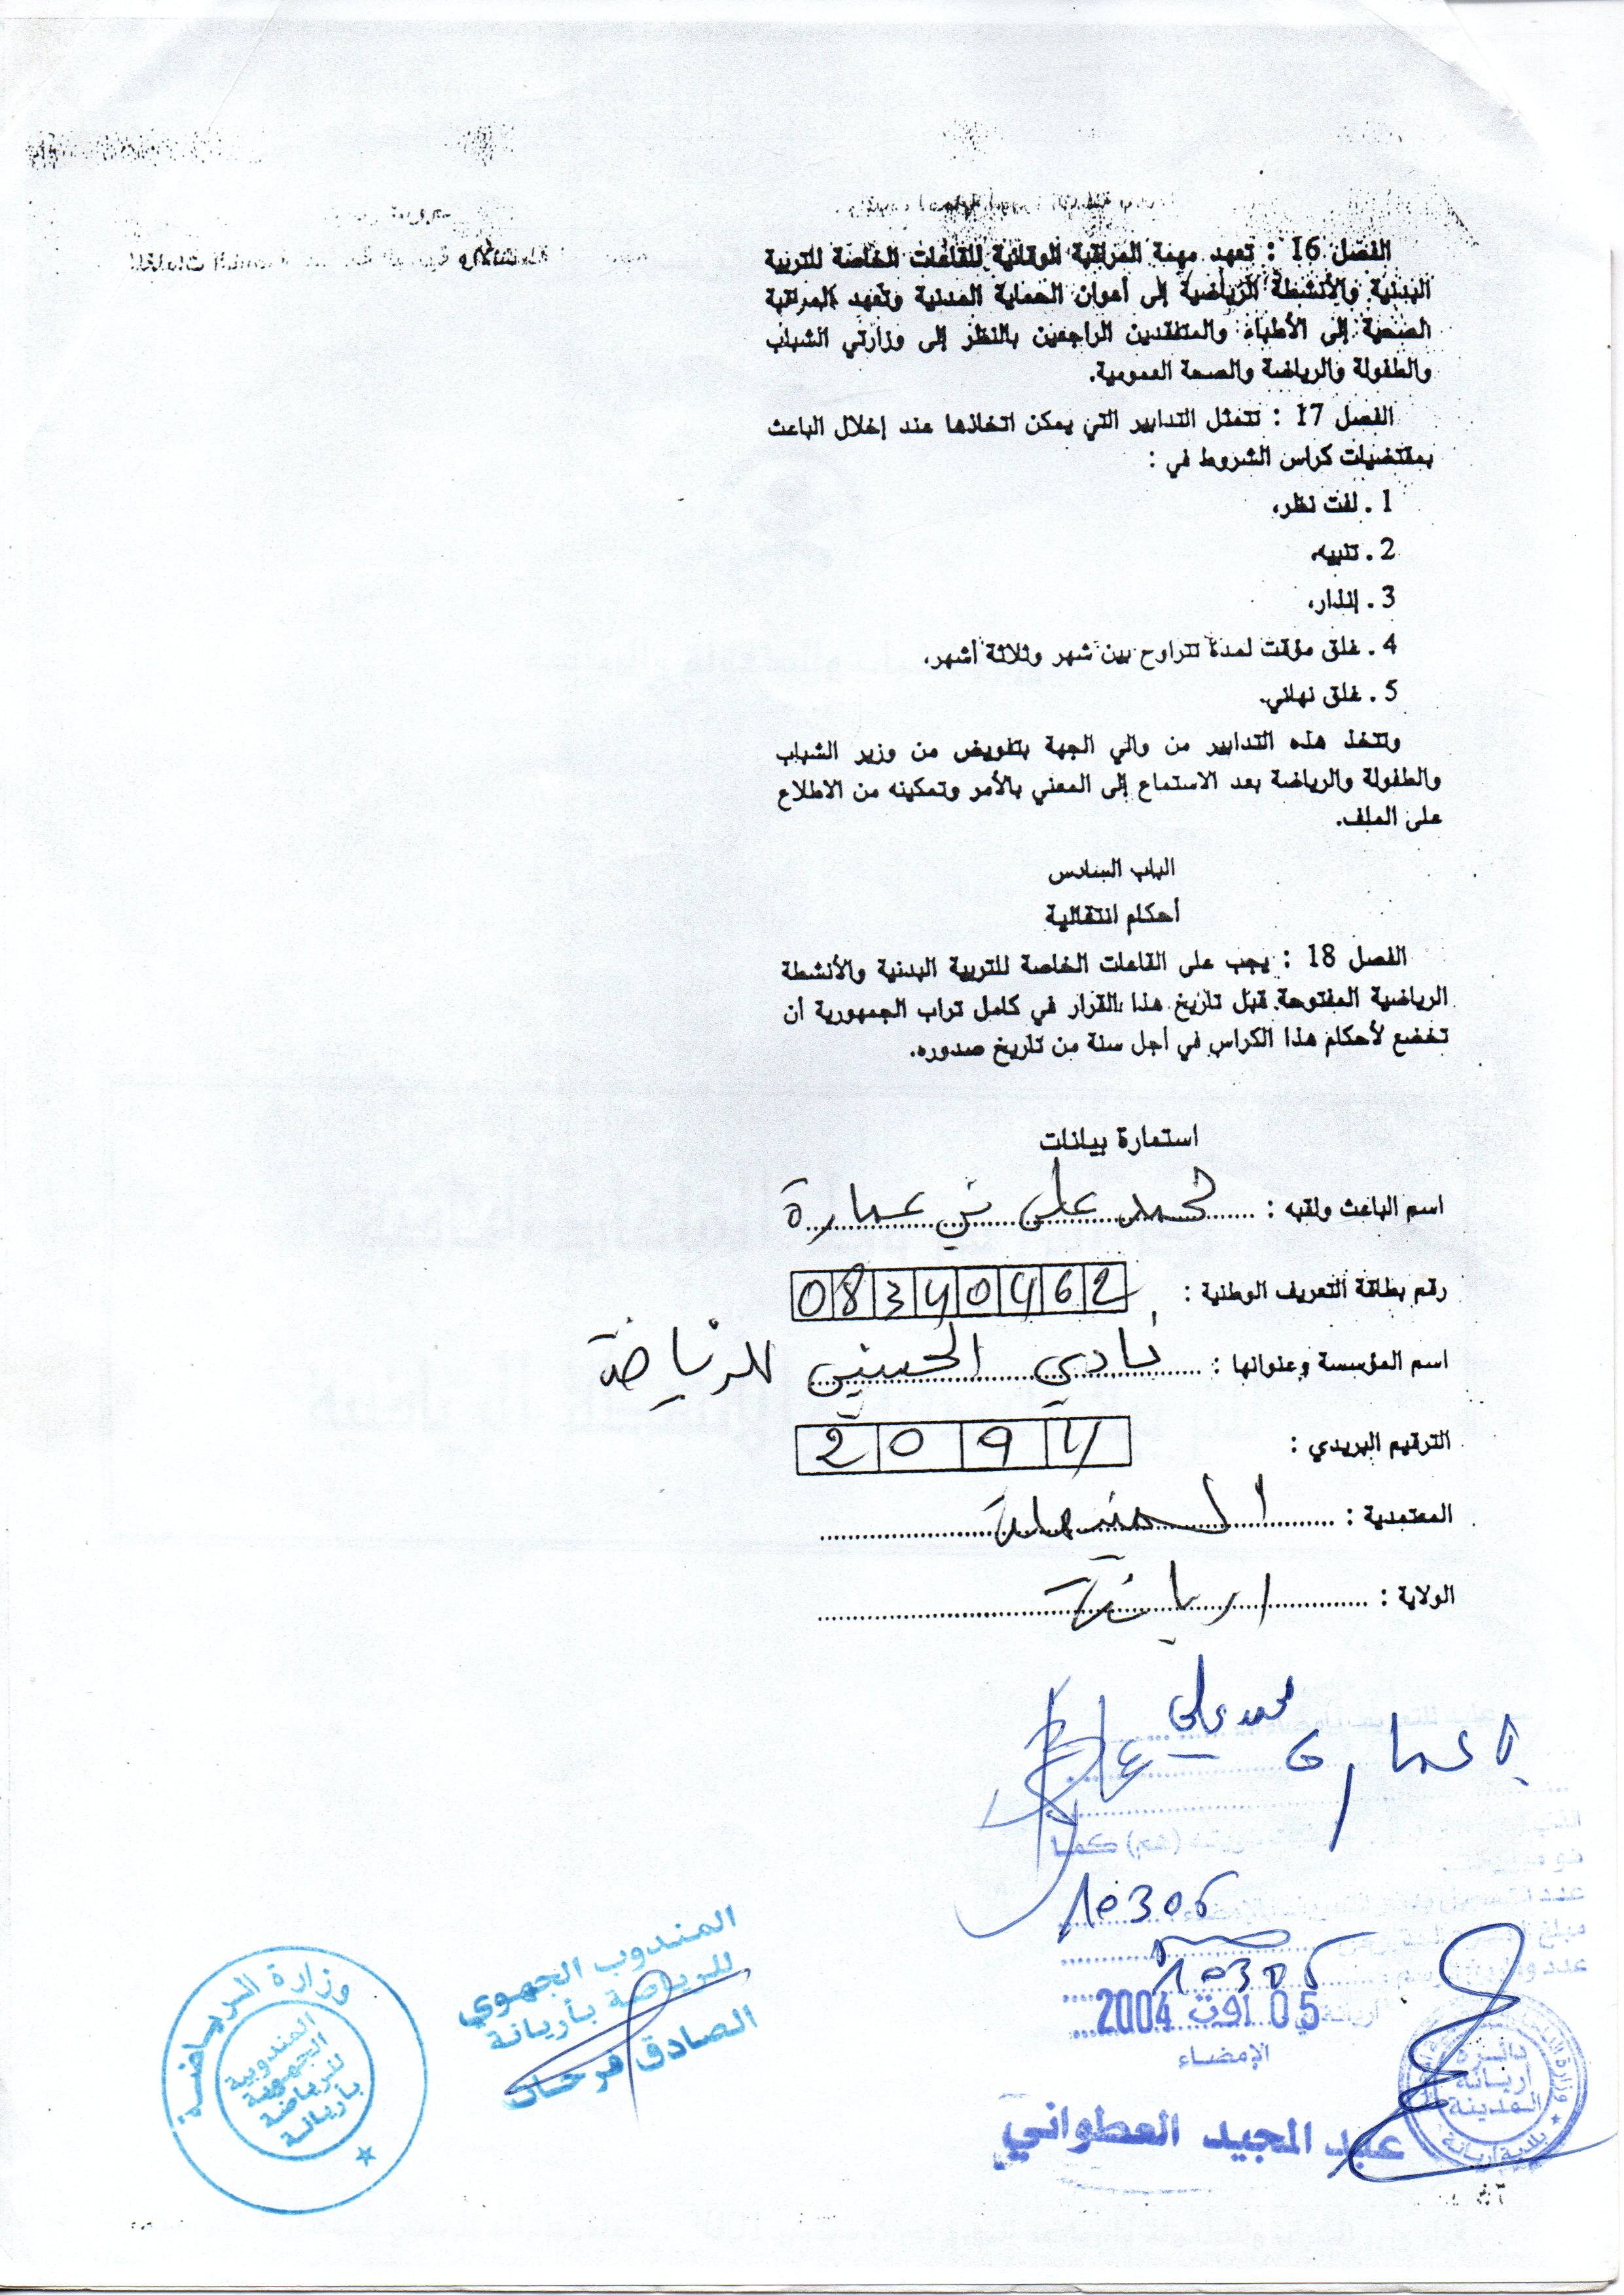 الفصل 16 : تعهد مهمة المراقبة الوقائية للقاعات الخاصة للتربية
البدنية والأنشطة الرياضية إلى أعوان الحماية المدنية وتعهد المراقبة
الصحية إلى الأطباء والمتفقدين الراجعين بالنظر إلى وزارتي الشباب
والطفولة والرياضة والصحة العمومية.
الفصل 17 : تتمثل التدابير التي يمكن اتخاذها عند إخلال الباعث
بمقتضيات كراس الشروط في :
1 . لفت نظر،
2 . تنبيه،
3 . إنذار،
4 . غلق مؤقت لمدة تتراوح بين شهر وثلاثة أشهر،
5 . غلق نهائي.
وتتخذ هذه التدابير من والي الجهة بتفويض من وزير الشباب
والطفولة والرياضة بعد الاستماع إلى المعني بالأمر وتمكينه من الاطلاع
على الملف.
الباب السادس
أحكام انتقالية
الفصل 18 : يجب على القاعات الخاصة للتربية البدنية والأنشطة
الرياضية المفتوحة قبل تاريخ هذا القرار في كامل تراب الجمهورية أن
تخضع لأحكام هذا الكراس في أجل سنة من تاريخ صدوره.
استمارة بيانات
اسم الباعث ولقبه : محمد علي بن عمارة
رقم بطاقة التعريف الوطنية : 08340462
اسم المؤسسة وعنوانها : نادي الحسيني للرياضة
الترقيم البريدي : 2094
المعتمدية : المنيهلة
الولاية : اريانة
محمد علي
بن عمارة
10306
10306
أريانة في 05 أوت 2004
الإمضاء
عبد المجيد العطواني
دائرة
أريانة
المدينة
بلدية أريانة
المندوب الجهوي
للرياضة بأريانة
الصادق فرحات
وزارة الرياضة
المندوبية
الجهوية
للرياضة
بأريانة